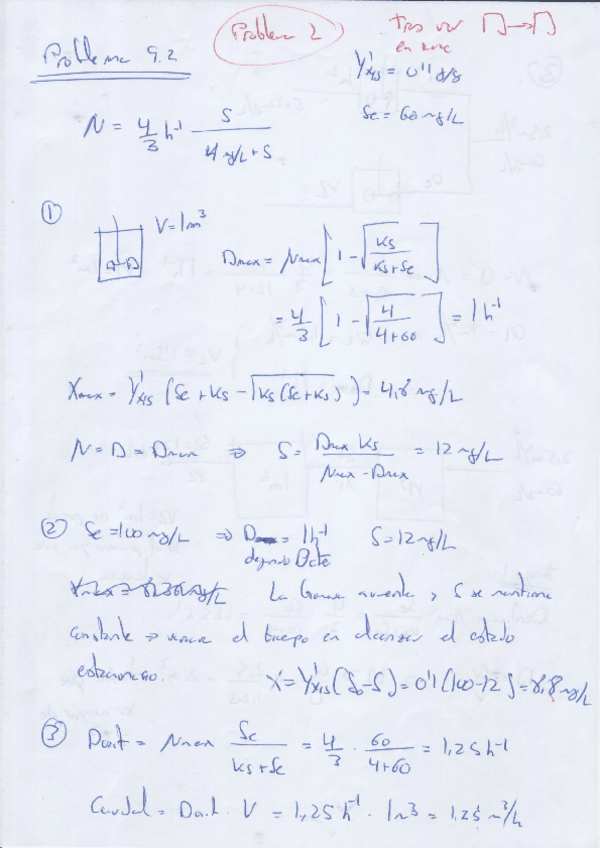 Problema 2
Problema 9.2
Y'x/s = 0'1 g/g
Se = 60 mg/L
μ = 4/3 h⁻¹ S / (4 mg/L + S)
①
V = 1 m³
Dmax = μmax [1 - √(Ks / (Ks + Se))]
= 4/3 [1 - √(4 / (4+60))] = 1 h⁻¹
Xmax = Y'x/s (Se + Ks - √(Ks (Se + Ks))) = 4,8 mg/L
μ = D = Dmax ⇒ S = Dmax Ks / (μmax - Dmax) = 12 mg/L
② Se = 100 mg/L ⇒ D = 1 h⁻¹ S = 12 mg/L
dejando D cte
La biomasa aumenta y S se mantiene
constante ⇒ el tiempo en alcanzar el estado
estacionario. X' = Y'x/s (So - S) = 0'1 (100 - 12) = 8,8 mg/L
③ Dcrit = μmax Se / (Ks + Se) = 4/3 · 60 / (4+60) = 1,25 h⁻¹
Caudal = Dcrit · V = 1,25 h⁻¹ · 1 m³ = 1,25 m³/h